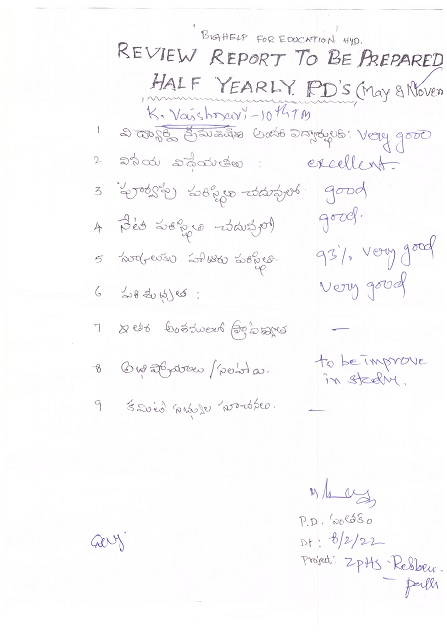 BIGHELP FOR EDUCATION HYD.
REVIEW REPORT TO BE PREPARED
HALF YEARLY PD's (May & Novem
K. Vaishnavi - 10th TM
1 విద్యార్థి క్రమశిక్షణ Very good
2 వినయ విధేయతలు : excellent.
3 పూర్వపు పరిస్థితి చదువులో good
4 నేటి పరిస్థితి చదువులో good.
5 స్కూలుకు హాజరు పరిస్థితి 93% very good
6 పరిశుభ్రత : very good
7 ఇతర అంశములలో —
8 అభిప్రాయాలు / సలహాలు. to be improve
in study.
9 కమిటీ సభ్యుల సూచనలు. —
P.D. సంతకం
Dt : 8/2/22
Project: ZPHS - Rebben
- palli